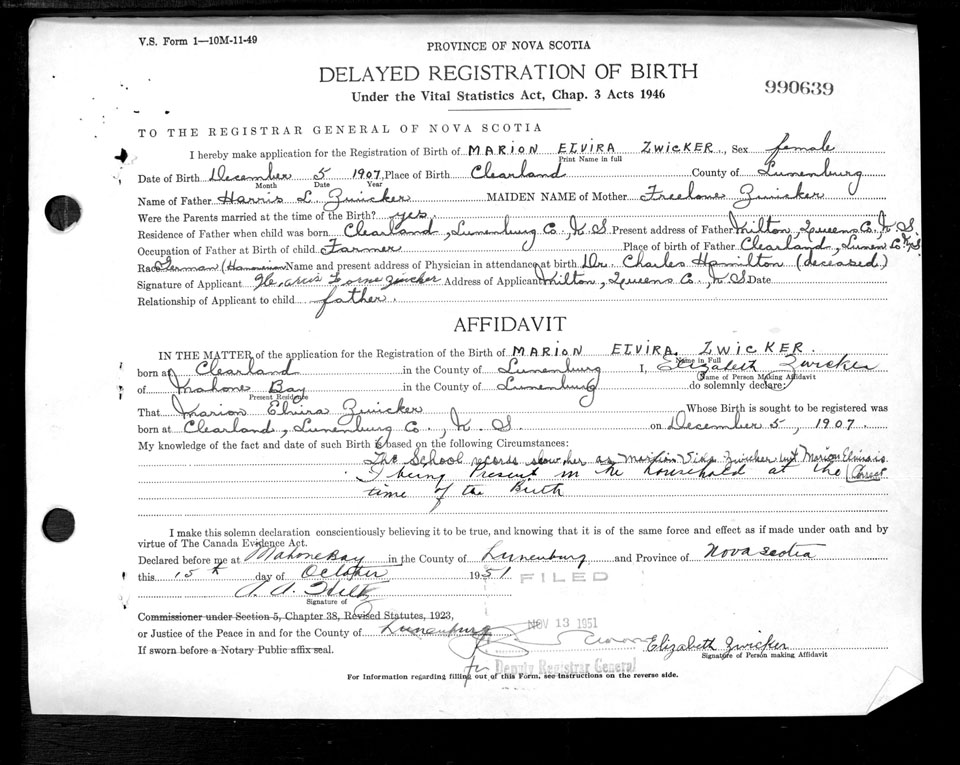 V.S. Form 1—10M-11-49
PROVINCE OF NOVA SCOTIA
DELAYED REGISTRATION OF BIRTH
990639
Under the Vital Statistics Act, Chap. 3 Acts 1946
TO THE REGISTRAR GENERAL OF NOVA SCOTIA
I hereby make application for the Registration of Birth of MARION ELVIRA ZWICKER, Sex female
Print Name in full
Date of Birth December 5 1907, Place of Birth Clearland County of Lunenburg
Month Date Year
Name of Father Harris L. Zwicker MAIDEN NAME of Mother Freelove Zwicker
Were the Parents married at the time of the Birth? yes.
Residence of Father when child was born Clearland, Lunenburg Co., N.S. Present address of Father Milton, Queens Co., N.S.
Occupation of Father at Birth of child Farmer Place of birth of Father Clearland, Lunen. Co. N.S.
Race German (Hanoverian Name and present address of Physician in attendance at birth Dr. Charles Hamilton (deceased)
Signature of Applicant Zwicker Address of Applicant Milton, Queens Co., N.S. Date
Relationship of Applicant to child father.
AFFIDAVIT
IN THE MATTER of the application for the Registration of the Birth of MARION ELVIRA ZWICKER.
Name in Full
born at Clearland in the County of Lunenburg I, Elizabeth Zwicker
Name of Person Making Affidavit
of Mahone Bay in the County of Lunenburg do solemnly declare:
Present Residence
That Marion Elvira Zwicker Whose Birth is sought to be registered was
born at Clearland, Lunenburg Co., N.S. on December 5, 1907.
My knowledge of the fact and date of such Birth is based on the following Circumstances:
The School records show her as Marion Zwicker but Marion Elvira is
I being Present in the household at the Correct
time of the Birth
I make this solemn declaration conscientiously believing it to be true, and knowing that it is of the same force and effect as if made under oath and by
virtue of The Canada Evidence Act.
Declared before me at Mahone Bay in the County of Lunenburg and Province of Nova Scotia
this 15th day of October 1951
FILED
Signature of
Commissioner under Section 5, Chapter 38, Revised Statutes, 1923,
NOV 13 1951
or Justice of the Peace in and for the County of Lunenburg
Elizabeth Zwicker
If sworn before a Notary Public affix seal.
Signature of Person making Affidavit
for Deputy Registrar General
For Information regarding filling out of this Form, see instructions on the reverse side.